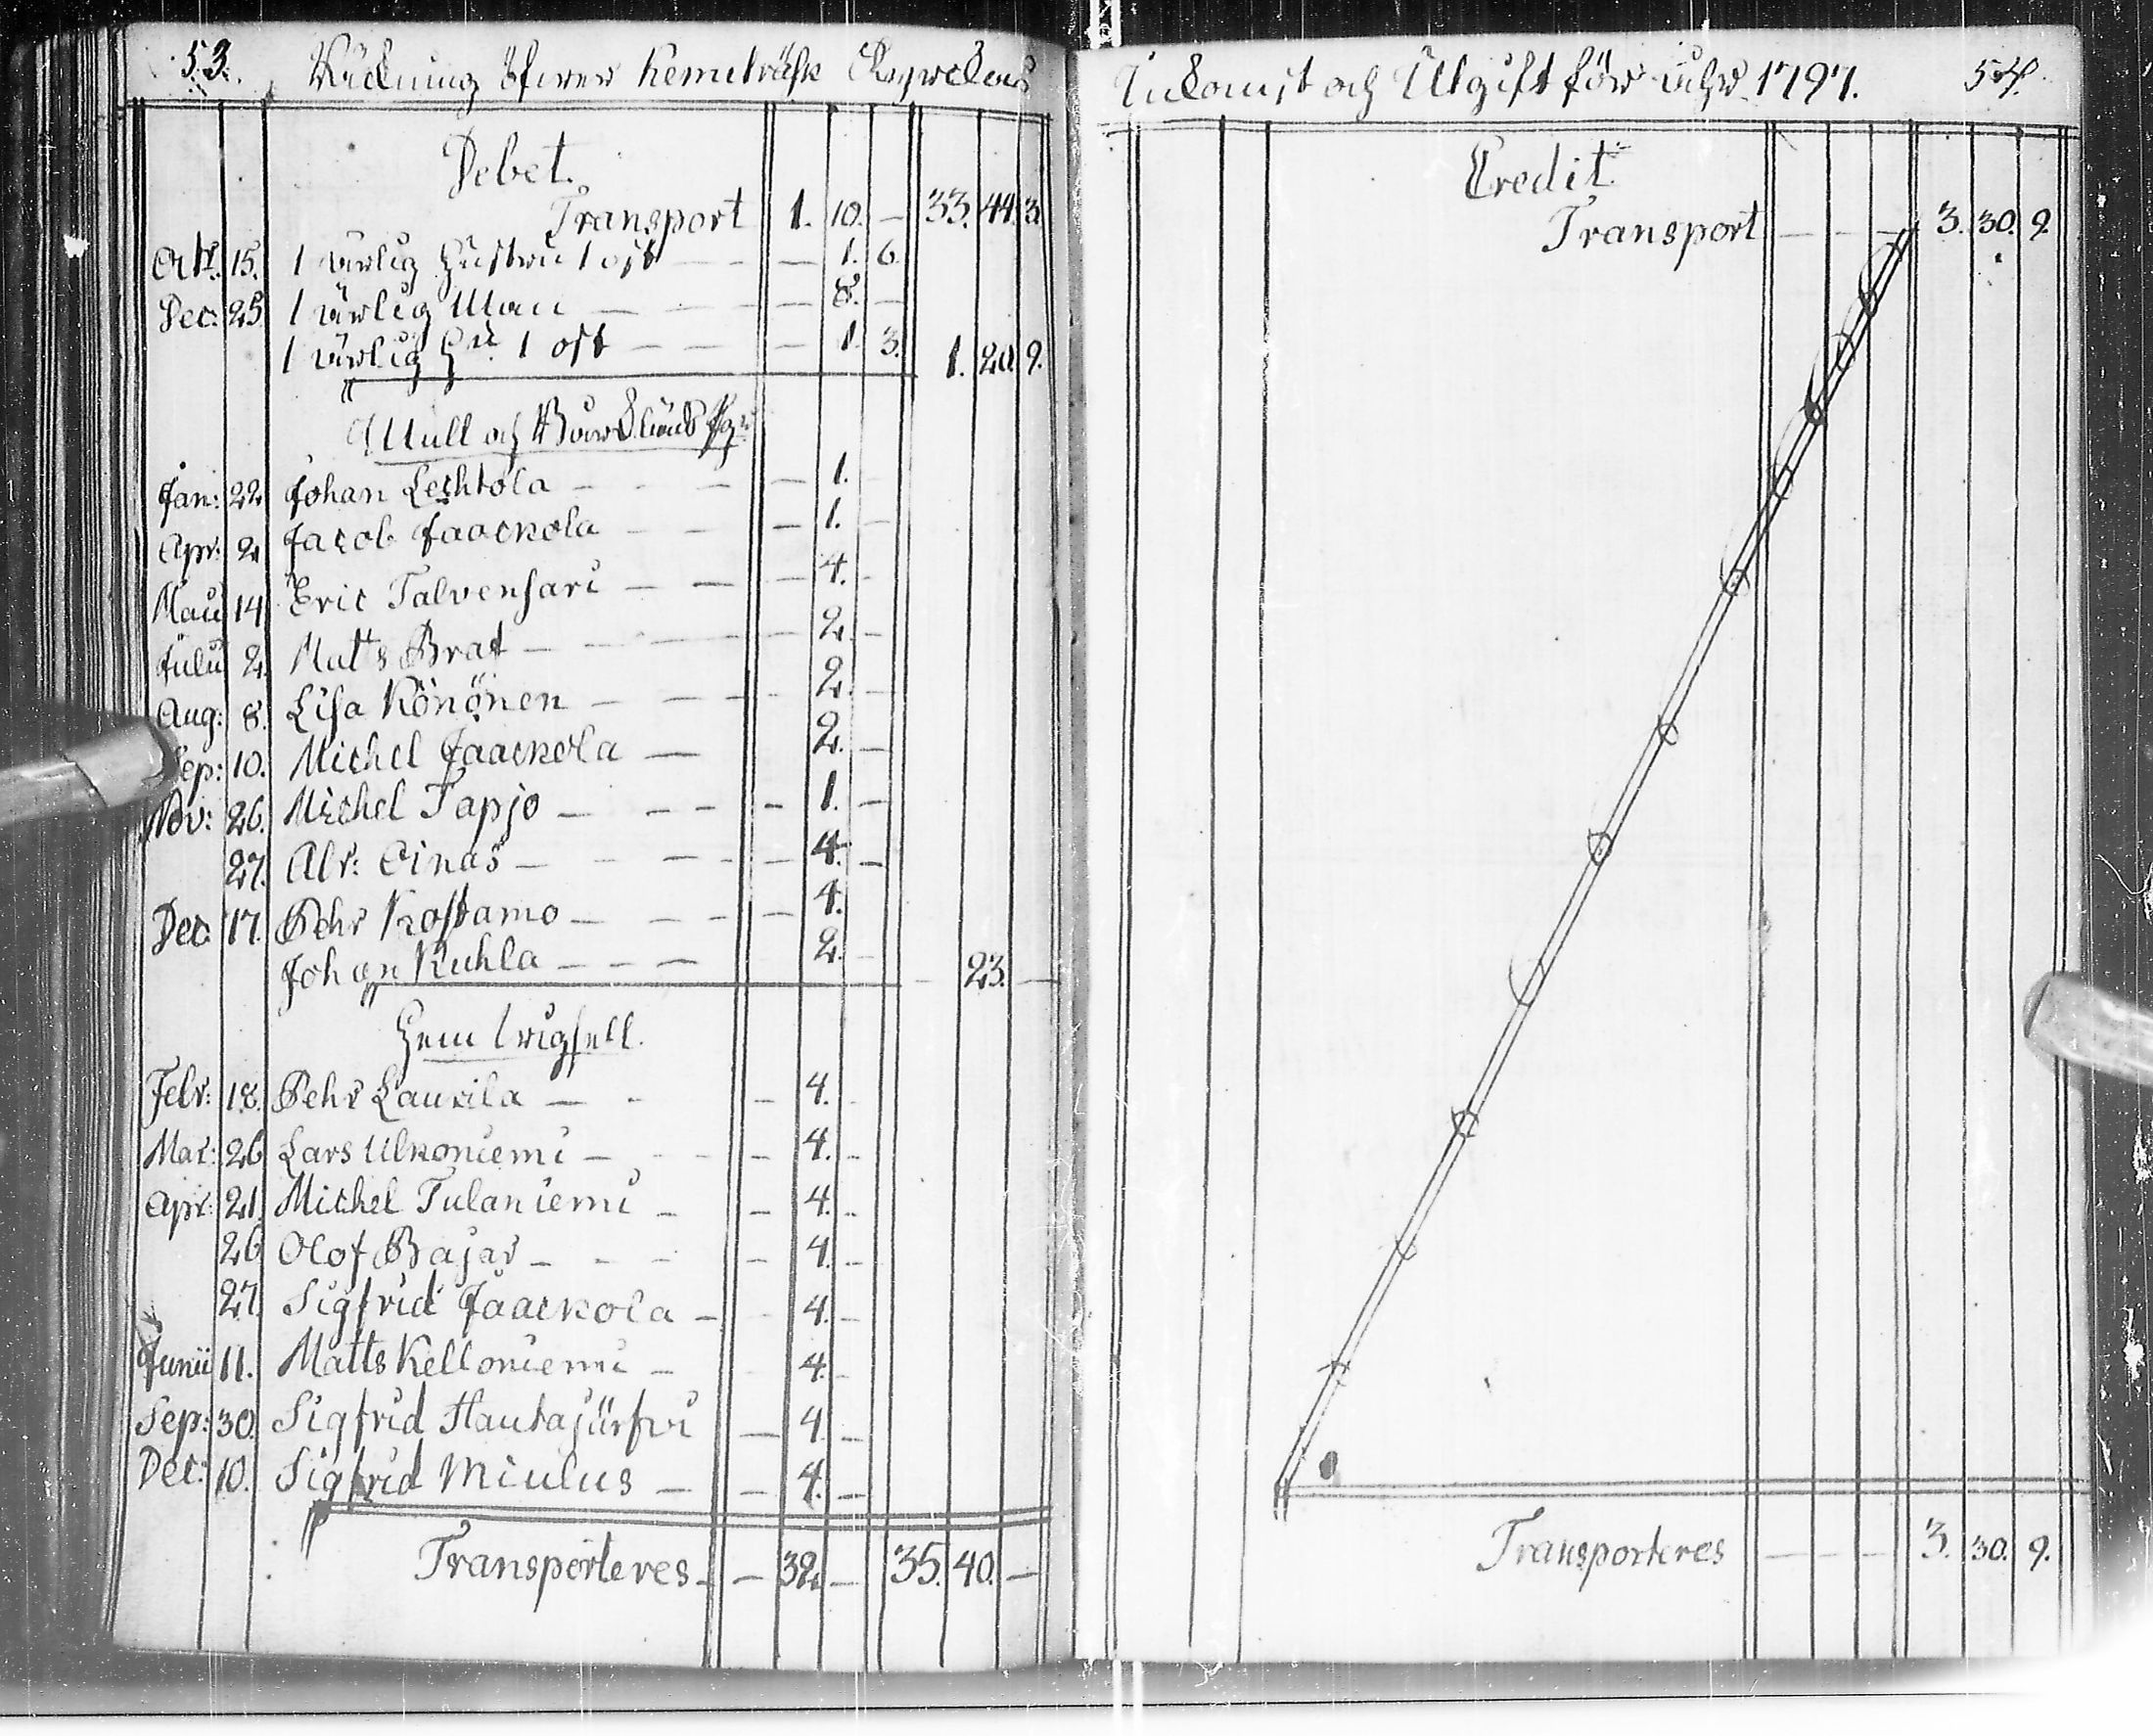 53. Räckning öfwer Kemiträsk Kyrckans
Debet.
Transport 1. 10. — 33. 44. 3.
Oct. 15. 1 ärlig Hustru 1 ost — — — 1. 6.
Dec: 25 1 ärlig Man — — — 8. —
1 ärlig Hu 1 ost — — — 1. 3. 1. 20. 9.
Mull och Bår
Jan: 22 Johan Lechtola — — — 1.
Apr: 2 Jacob Jaackola — — — 1. —
Maii 14 Eric Talvensari — — — 4. —
Julii 2. Matts Brat — — — 2. —
Aug: 8. Lisa Könönen — — — 2. —
Sep: 10. Michel Jaackola — 2. —
Nov: 26. Michel Tapjo — — — — 1. —
27. Alr: Oinas — — — — 4. —
Dec 17. Pehr Kostamo — — — — 4.
Johan Kuhla — — — 2. — 23. —
Hem wigsell.
Febr: 18. Pehr Laurila — — — 4. —
Mar: 26 Lars Ulkoniemi — — — — 4. —
Apr: 21. Michel Tulaniemi — — 4. —
26 Olof Bajar — — — — 4. —
27. Sigfrid Jaackola — 4. —
Junii 11. Matts Kelloniemi — 4. —
Sep: 30. Sigfrid Hautajärfwi — 4. —
Dec: 10. Sigfrid Miulus — — 4. —
Transporteres — — 32. — 35. 40. —
Inkomst och Utgift för åhr 1797. 54.
Credit
Transport — — — 3. 30. 9.
Transporteres — — — 3. 30. 9.